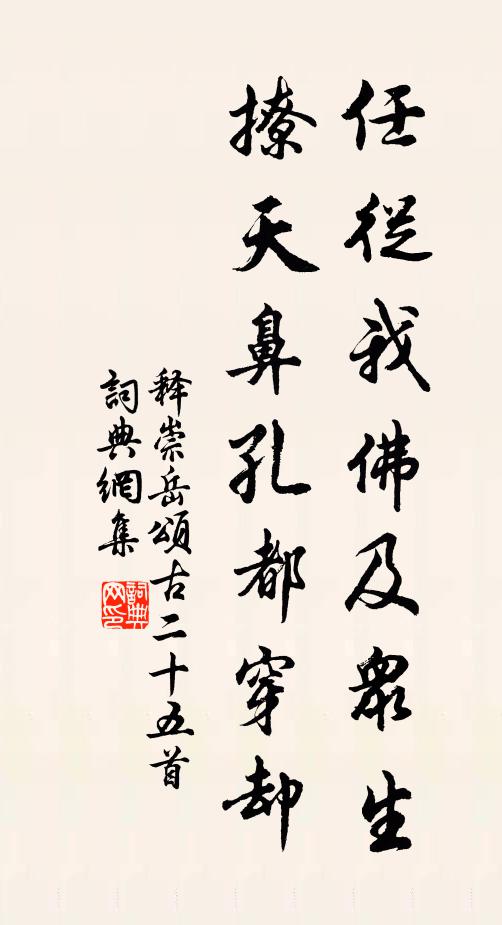 任從我佛及眾生
撩天鼻孔都穿却
释崇岳頌古二十五首
詞典網集
詞典
网印